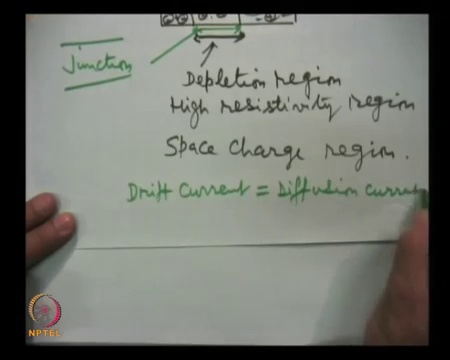 Junction
Depletion region
High resistivity region
Space Charge region.
Drift Current = Diffusion current
NPTEL